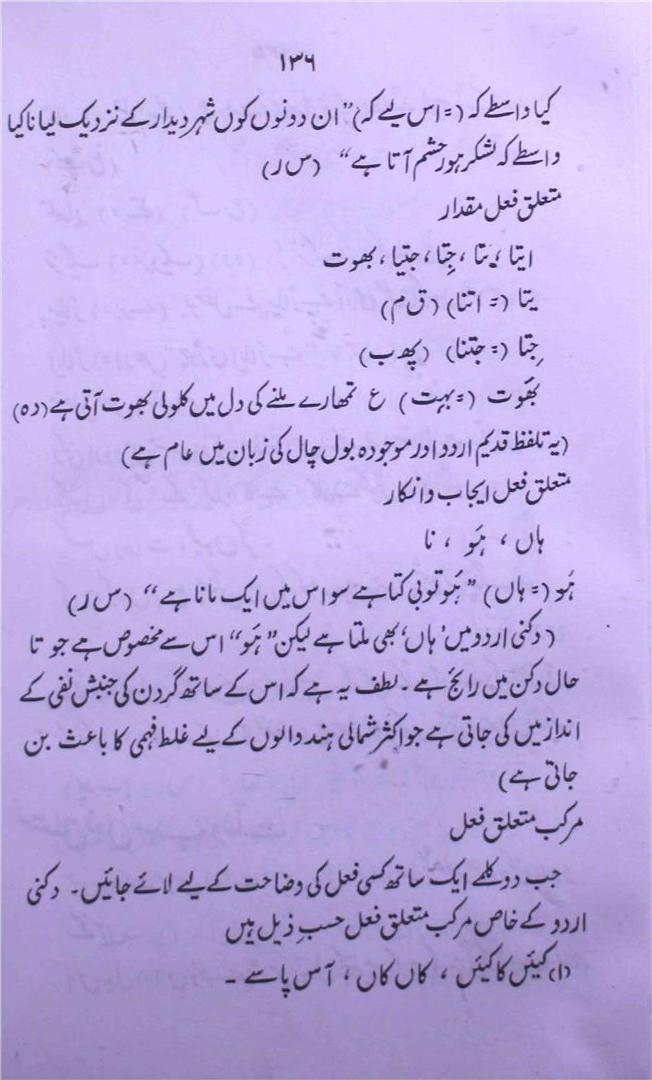 ۱۳۶
کیا واسطے کہ (= اس لیے کہ) ”ان دونوں کوں شہر دیدار کے نزدیک لیانا کیا
واسطے کہ لشکر ہور حشم آتا ہے“ (س ر)
متعلق فعل مقدار
ایتا ، یتا ، جِتا ، جتیا ، بھوت
یتا (= اتنا) (ق م)
جِتا (= جتنا) (پھ ب)
بھَوت (= بہت) ع تمھارے ملنے کی دل میں کلولی بھوت آتی ہے (دہ)
(یہ تلفظ قدیم اردو اور موجودہ بول چال کی زبان میں عام ہے)
متعلق فعل ایجاب و انکار
ہاں ، ہَو ، نا
ہَو (= ہاں) ”ہَو تو بی کتا ہے سو اس میں ایک مانا ہے“ (س ر)
(دکنی اردو میں ’ہاں‘ بھی ملتا ہے لیکن ”ہَو“ اس سے مخصوص ہے جو تا
حال دکن میں رائج ہے ۔ لطف یہ ہے کہ اس کے ساتھ گردن کی جنبش نفی کے
انداز میں کی جاتی ہے جو اکثر شمالی ہند والوں کے لیے غلط فہمی کا باعث بن
جاتی ہے)
مرکب متعلق فعل
جب دو کلمے ایک ساتھ کسی فعل کی وضاحت کے لیے لائے جائیں ۔ دکنی
اردو کے خاص مرکب متعلق فعل حسبِ ذیل ہیں
(۱) کیئں کا کیئں ، کاں کاں ، آس پاسے ۔